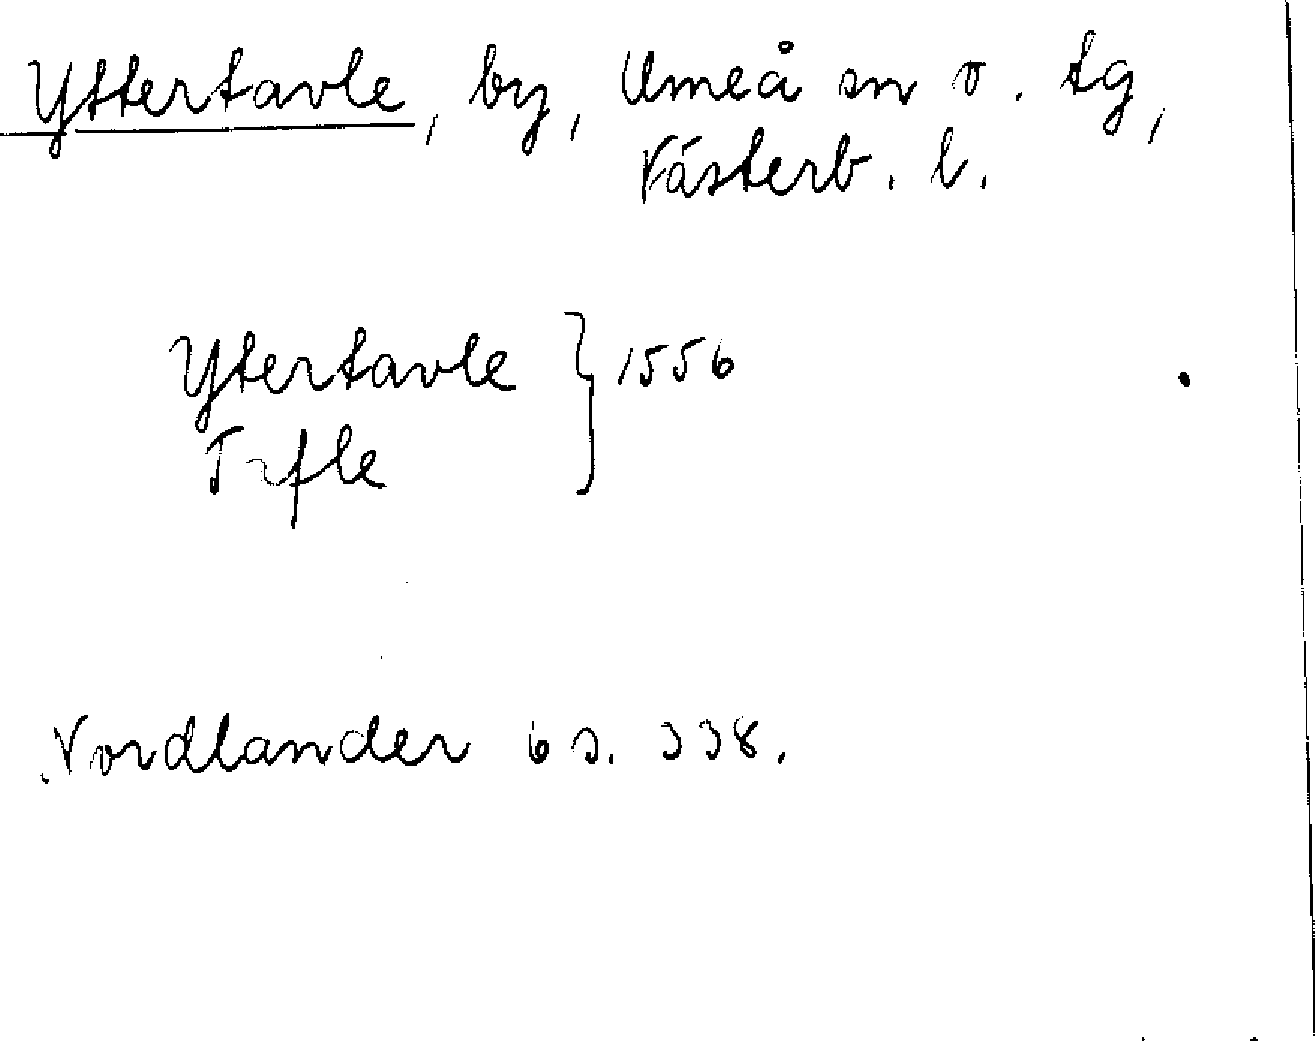 Yttertavle, by, Umeå sn o. tg,
Västerb. l.
Ytertavle } 1556
Tafle
Nordlander 6 s. 338.